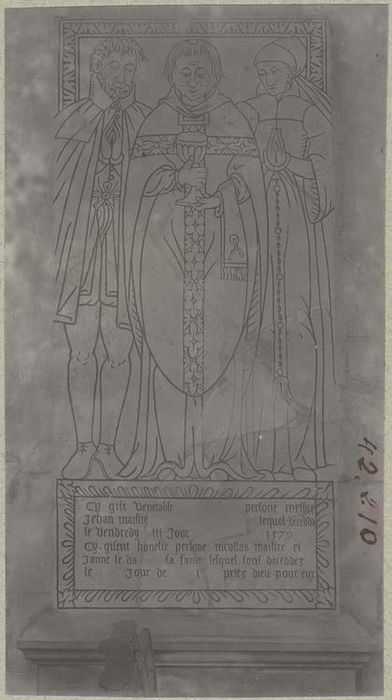 Cy gist Venerable persone messire
Jehan maistre lequel decedda
le Vendredy III Jour 1579
Cy gisent honeste persone nicollas maistre et
Janne le da sa fame lesquel sont deceddez
le Jour de 1 priez dieu pour eux
42,210